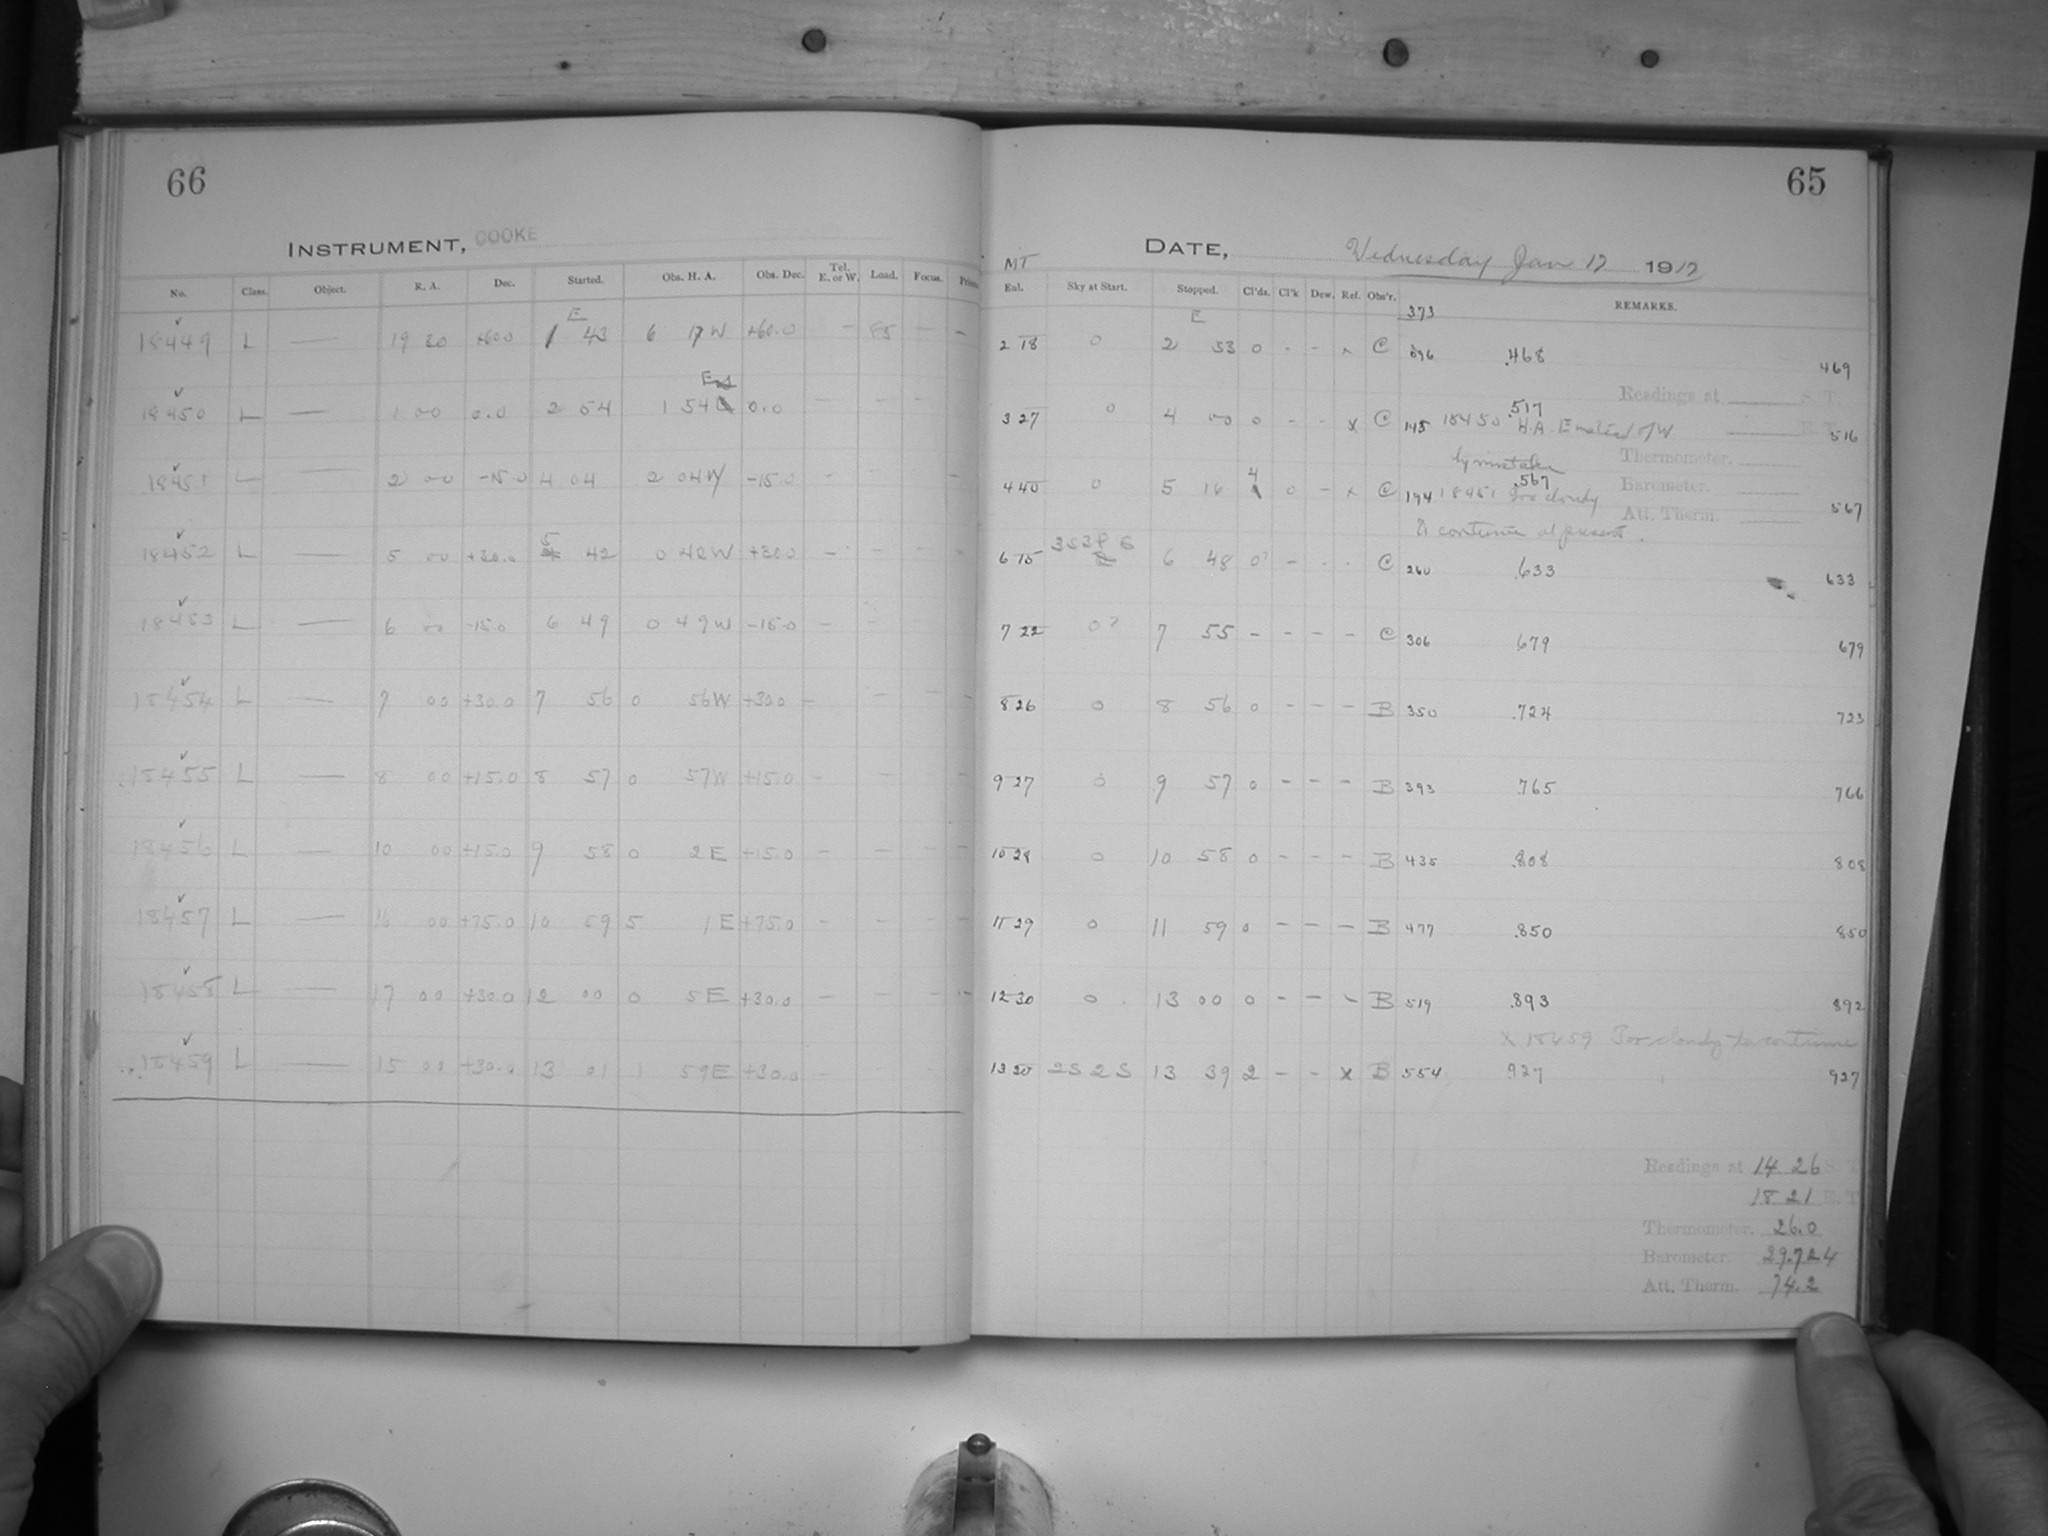 66
INSTRUMENT, COOKE
No. Class. Object. R. A. Dec. Started. Obs. H. A. Obs. Dec. Tel. E. or W. Load. Focus.
E
18449 L — 19 30 +60.0 1 43 6 17 W +60.0 – – –
18450 L — 1 00 0.0 2 54 1 54 E 0.0 – –
18451 L — 2 00 -15.0 4 04 2 04 W -15.0 – –
18452 L — 5 00 +30.0 5 42 0 42 W +30.0 – – –
18453 L — 6 00 -15.0 6 49 0 49 W -15.0 – –
18454 L — 7 00 +30.0 7 56 0 56 W +30.0 – – – –
18455 L — 8 00 +15.0 8 57 0 57 W +15.0 – – –
18456 L — 10 00 +15.0 9 58 0 2 E +15.0 – – – –
18457 L — 16 00 +75.0 10 59 5 1 E +75.0 – – – –
18458 L — 17 00 +30.0 12 00 0 5 E +30.0 – – – –
18459 L — 15 00 +30.0 13 01 1 59 E +30.0 – – –
65
DATE, Wednesday Jan 17 1912
MT
Eql. Sky at Start. Stopped. Cl'ds. Cl'k Dew. Ref. Obs'r. REMARKS.
E 373
2 18 0 2 53 0 - - x C 096 .468 469
Readings at S. T.
3 27 0 4 00 0 - - x C 145 18450 .517 H.A. E instead of W 516
by mistake Thermometer.
4 40 0 5 16 4 0 - x C 194 18451 .567 Too cloudy Barometer. 567
to continue at present. Att. Therm.
6 15 6 48 0? - - - C 260 .633 633
7 22 0? 7 55 - - - - C 306 679 679
8 26 0 8 56 0 - - - B 350 .724 723
9 27 0 9 57 0 - - - B 393 .765 766
10 28 0 10 58 0 - - - B 435 .808 808
11 29 0 11 59 0 - - - B 477 .850 850
12 30 0 13 00 0 - - - B 519 .893 892
x 18459 Too cloudy to continue
13 20 2S 2S 13 39 2 - - x B 554 .927 927
Readings at 14 26 S. T.
18 21 E. T.
Thermometer. 26.0
Barometer. 29.724
Att. Therm. 74.2